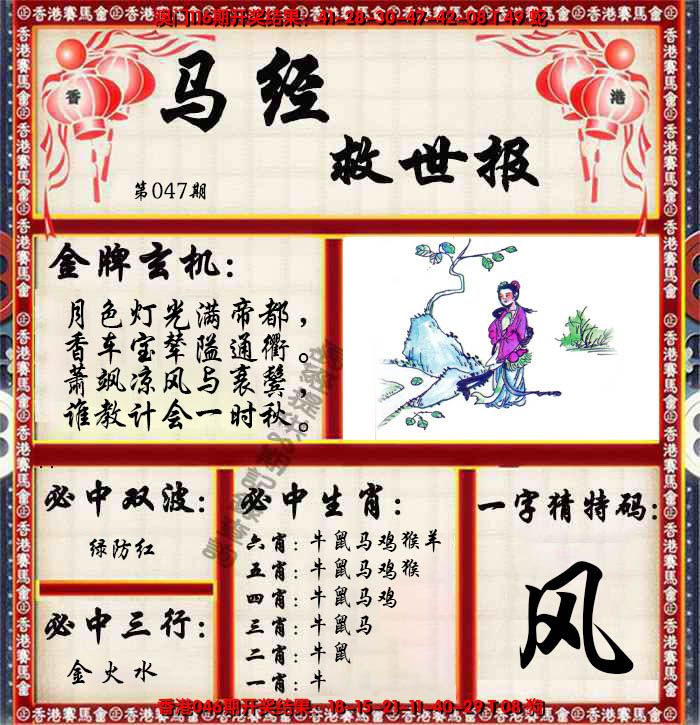 澳门116期开奖结果：41-28-30-47-42-08 T 49 蛇
香
港
马经
救世报
第047期
金牌玄机：
月色灯光满帝都，
香车宝辇隘通衢。
萧飒凉风与衰鬓，
谁教计会一时秋。
必中双波：
绿防红
必中三行：
金火水
必中生肖：
六肖：牛鼠马鸡猴羊
五肖：牛鼠马鸡猴
四肖：牛鼠马鸡
三肖：牛鼠马
二肖：牛鼠
一肖：牛
一字猜特码：
风
香港赛馬會
香港046期开奖结果：18-15-21-11-40-29 T 08 狗